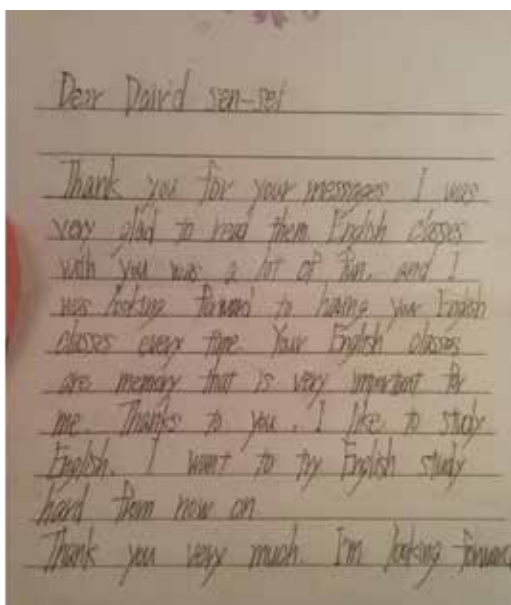 Dear David sen-sei
Thank you for your messages I was
very glad to read them. English classes
with you was a lot of fun, and I
was looking forward to having your English
classes every time. Your English classes
are memory that is very important for
me. Thanks to you, I like to study
English. I want to try English study
hard from now on
Thank you very much. I'm looking forward